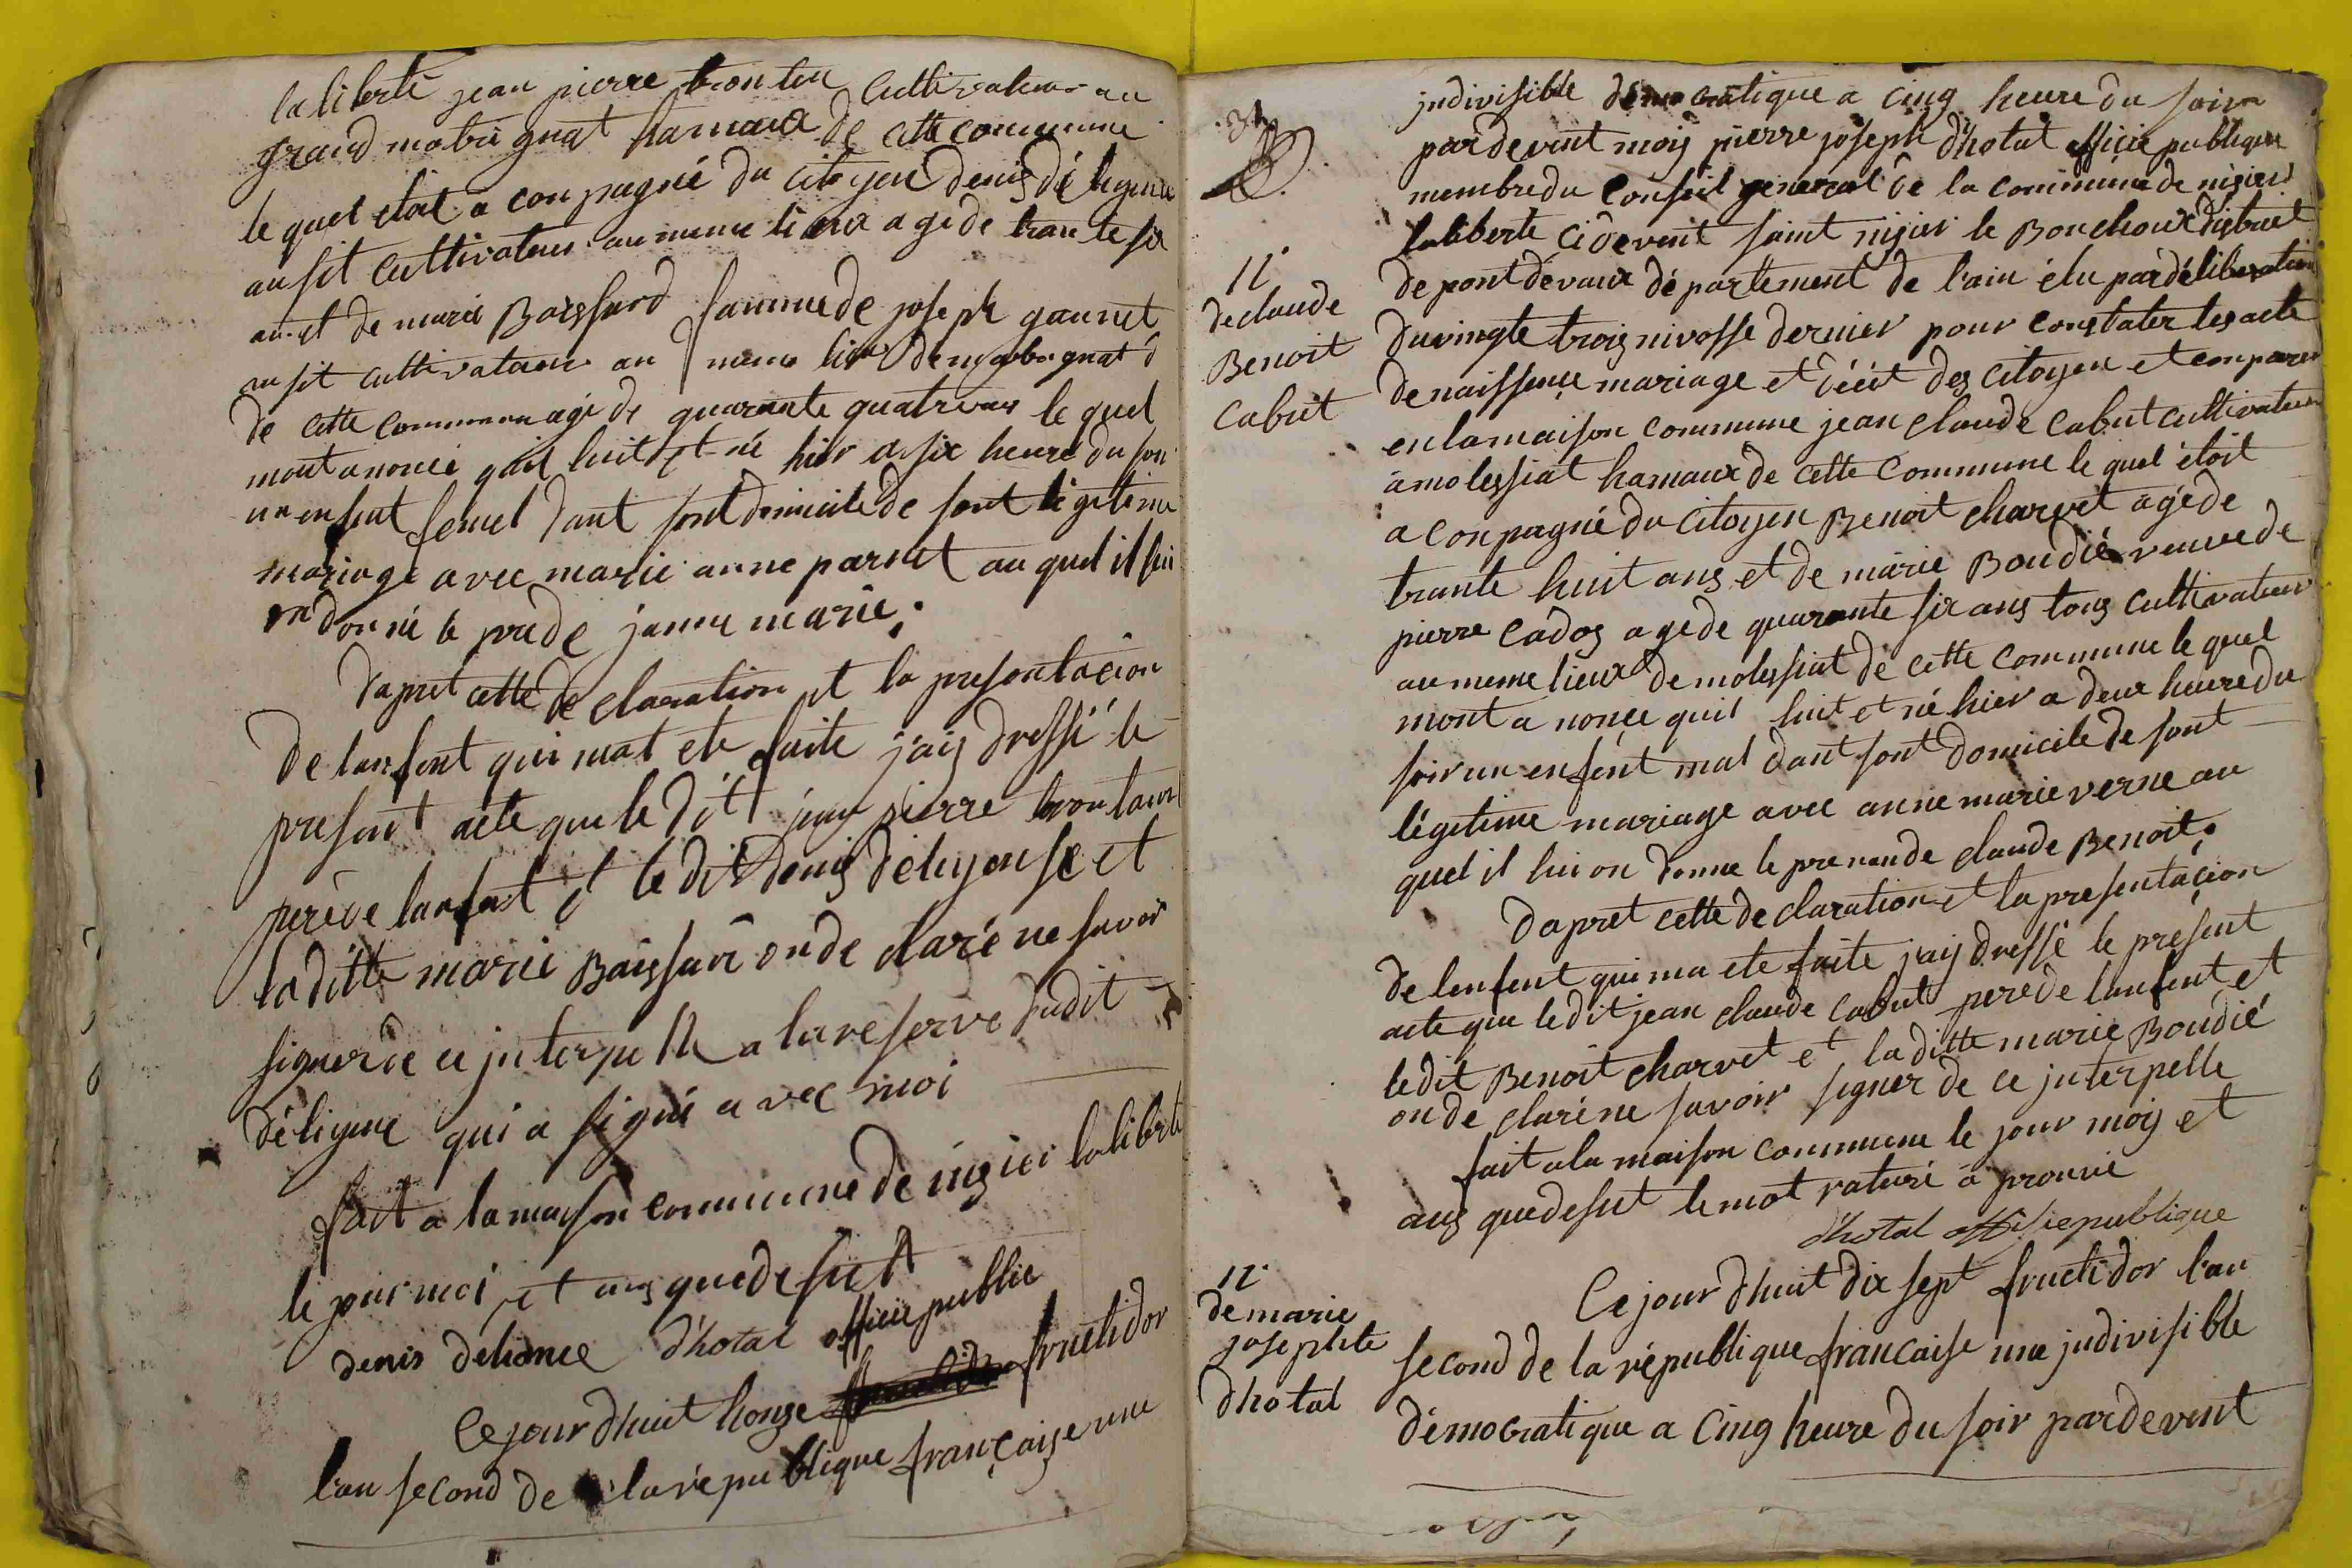 la liberté jean pierre cultivateur au
grand mobignat hamaux de cette commune
le quel étoit a conpagné du citoyen denis déligence
ausit cultivateur au meme lieux agé de trante six
ans et de marie Boissard famme de joseph gaunet
ausit cultivateur au meme lieu de mobignat
de cette commune agé de quarante quatre ans le quel
mont anoncé quil luit et né hier a six heure du soir
un enfent femel dant sont domicile de sont légitime
mariage avec marie anne parnet au quel il lui
on donné le prede janne marie.
dapret cette de claration et la presontacion
de lanfent qui mat ete faite jais dressé le
present acte que le dit jean pierre
pere de lanfent et le dit denis et
la ditte marie Boissard on de claré ne savoir
signer de ce jnterpelle a la reserve dudit
déligence qui a signé avec moi
fait a la maison commune de nizier la liberté
le jour moi et ans que desut
denis delionce d'hotal officie public
Ce jour dhuit honze fructidor
l'an second de la république française une
31
jndivisible démocratique a cinq heure du soir
pardevent moij pierre joseph d'hotal officie publique
membre du Conseil general de la commune de nizier
la liberte cidevent saint nizier le Bouchoux district
de pont dévaux département de l'ain élu par déliberation
du vingte trois nivosse dernier pour constater les acte
de naissence mariage et décét des citoyen et conparu
en la maison commune jean claude Cabut cultivateur
à molessiat hamaux de cette Commune le quel étoit
a conpagné du citoyen Benoit charvet agé de
trante huit ans et de marie Boudié veuve de
pierre Cados agé de quarante six ans tous cultivateur
au meme lieux de molessiat de cette commune le quel
mont a nonce quil luit et né hier a deux heure du
soir un enfent mal dant sont domicile de sont
légitime mariage avec anne marie verne au
quel il lui on donne le prenon de claude Benoit.
dapret cette de claration et la presentacion
de lenfent qui ma ete faite jaij dressé le present
acte que le dit jean claude Cabut pere de lanfent et
le dit Benoit charvet et la ditte marie Boudié
on de claré ne savoir signer de ce jnterpelle
fait a la maison commune le jour mois et
ans que desut le mot raturé a prouvé
d'hotal officie publique
Ce jour dhuit dix sept fructidor l'an
second de la république francaise une jndivisible
démocratique a cinq heure du soir pardevent
11
de claude
Benoit
Cabut
12
de marie
josephte
dhotal